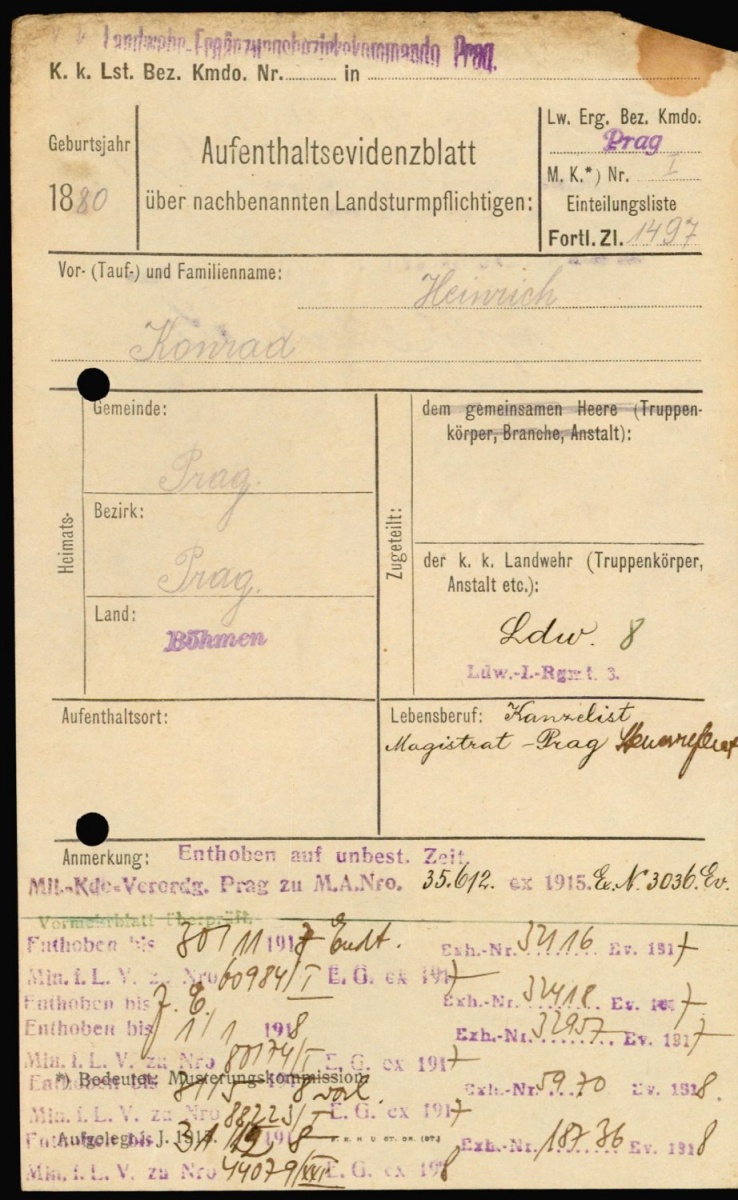 k. k. Landwehr-Ergänzungsbezirkskommando Prag.
K. k. Lst. Bez. Kmdo. Nr. in
Geburtsjahr
1880
Aufenthaltsevidenzblatt
über nachbenannten Landsturmpflichtigen:
Lw. Erg. Bez. Kmdo.
Prag
M. K.*) Nr. I
Einteilungsliste
Fortl. Zl. 1497
Vor- (Tauf-) und Familienname:
Heinrich
Konrad
Heimats-
Gemeinde:
Prag.
Bezirk:
Prag.
Land:
Böhmen
Zugeteilt:
dem gemeinsamen Heere (Truppen-
körper, Branche, Anstalt):
der k. k. Landwehr (Truppenkörper,
Anstalt etc.):
Ldw. 8
Ldw.-I.-Rgmt. 8.
Aufenthaltsort:
Lebensberuf: Kanzelist
Magistrat - Prag
Anmerkung: Enthoben auf unbest. Zeit.
Mil.-Kdo-Verordg. Prag zu M.A.Nro. 35.612. ex 1915. Ex. N. 3036. Ev.
Vormerkblatt überprüft.
Enthoben bis 30/11 1917 Endt. Exh.-Nr. 32116 Ev. 1917
Min. f. L. V. zu Nro 60984/I E. G. ex 1917
Enthoben bis Exh.-Nr. 32418 Ev. 1917
Enthoben bis 1/1 1918 Exh.-Nr. 32957 Ev. 1917
Min. f. L. V. zu Nro 80174/I E. G. ex 1917
*) Bedeutet: Musterungskommission.
Enthoben bis Exh.-Nr. 5970 Ev. 1918.
Min. f. L. V. zu Nro 88223/I E. G. ex 1917
Aufgelegt i. J. 191
Enthoben bis 31/12 1918 Exh.-Nr. 18736 Ev. 1918
Min. f. L. V. zu Nro 44079/XXI E. G. ex 1918